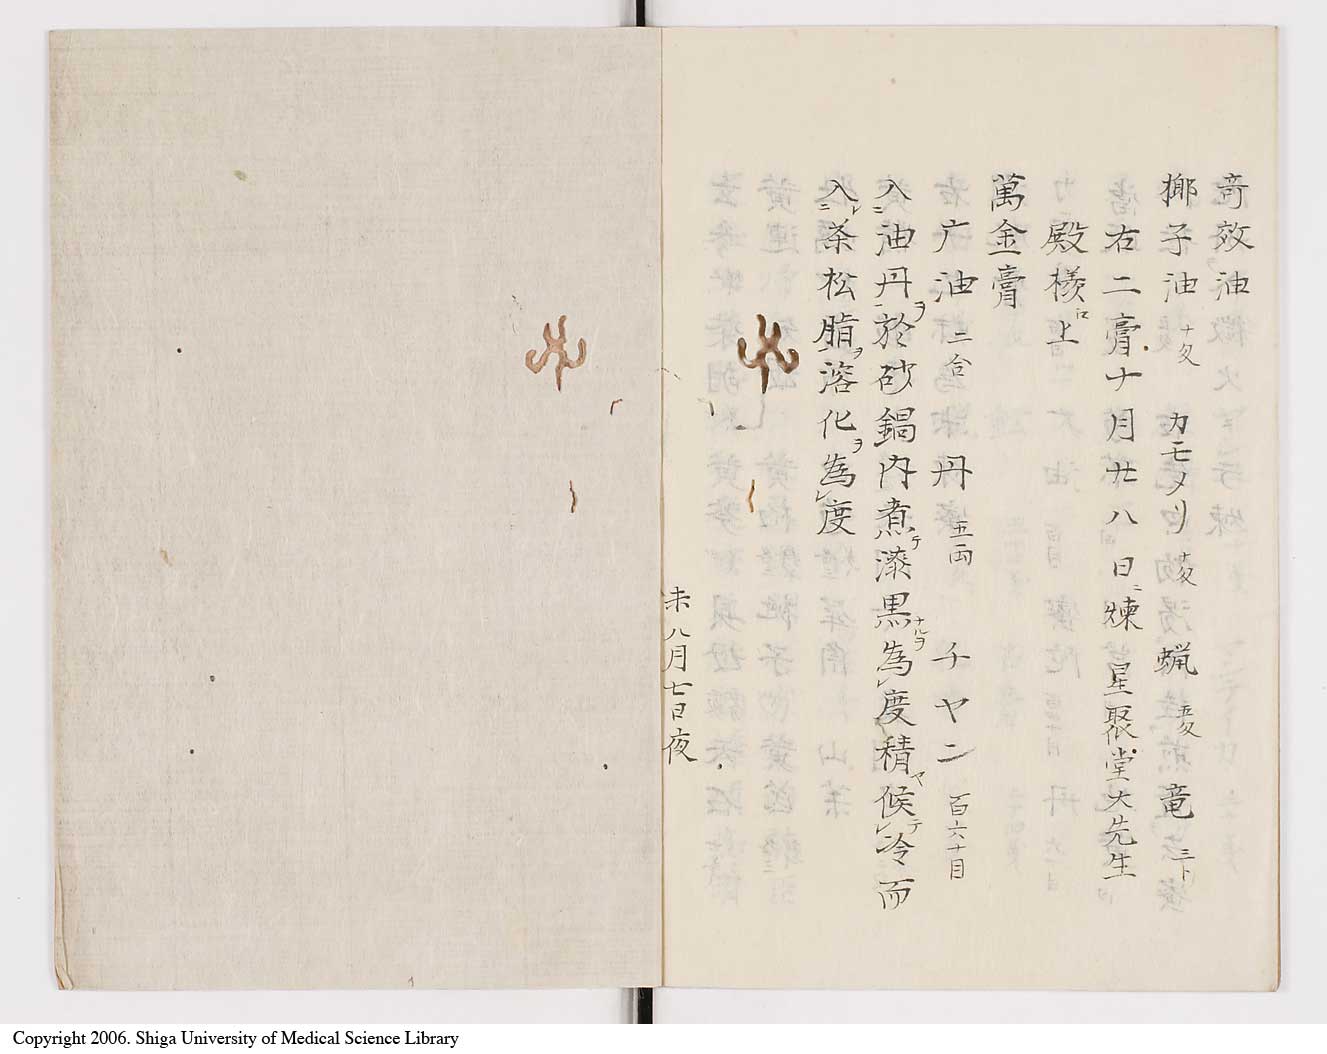 奇效油
椰子油 十匁 カモメリ 廿匁 蝋 五匁 竜 三卜
右二膏十月廿八日ニ煉 星聚堂大先生
殿様江上
萬金膏
广油 二合 丹 五両 チヤン 百六十目
入ニ油丹ヲ於砂鍋内煮テ漆黒ナルヲ為レ度積候ヤヽ冷テ而
入ニレ茶松脂ヲ溶化ヲ為レ度
未八月七日夜
Copyright 2006. Shiga University of Medical Science Library